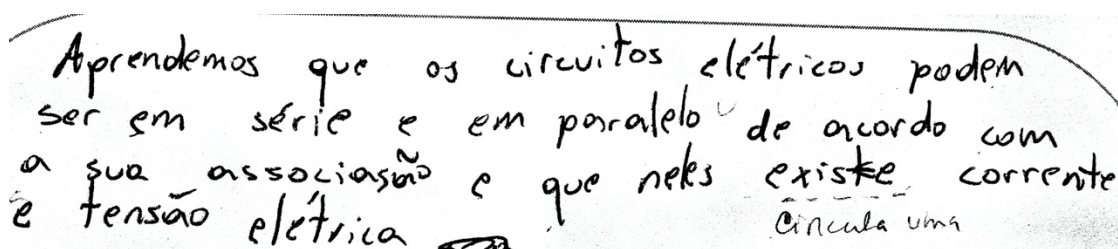 Aprendemos que os circuitos elétricos podem
ser em série e em paralelo de acordo com
a sua associasão e que neles existe corrente
e tensão elétrica
Circula uma